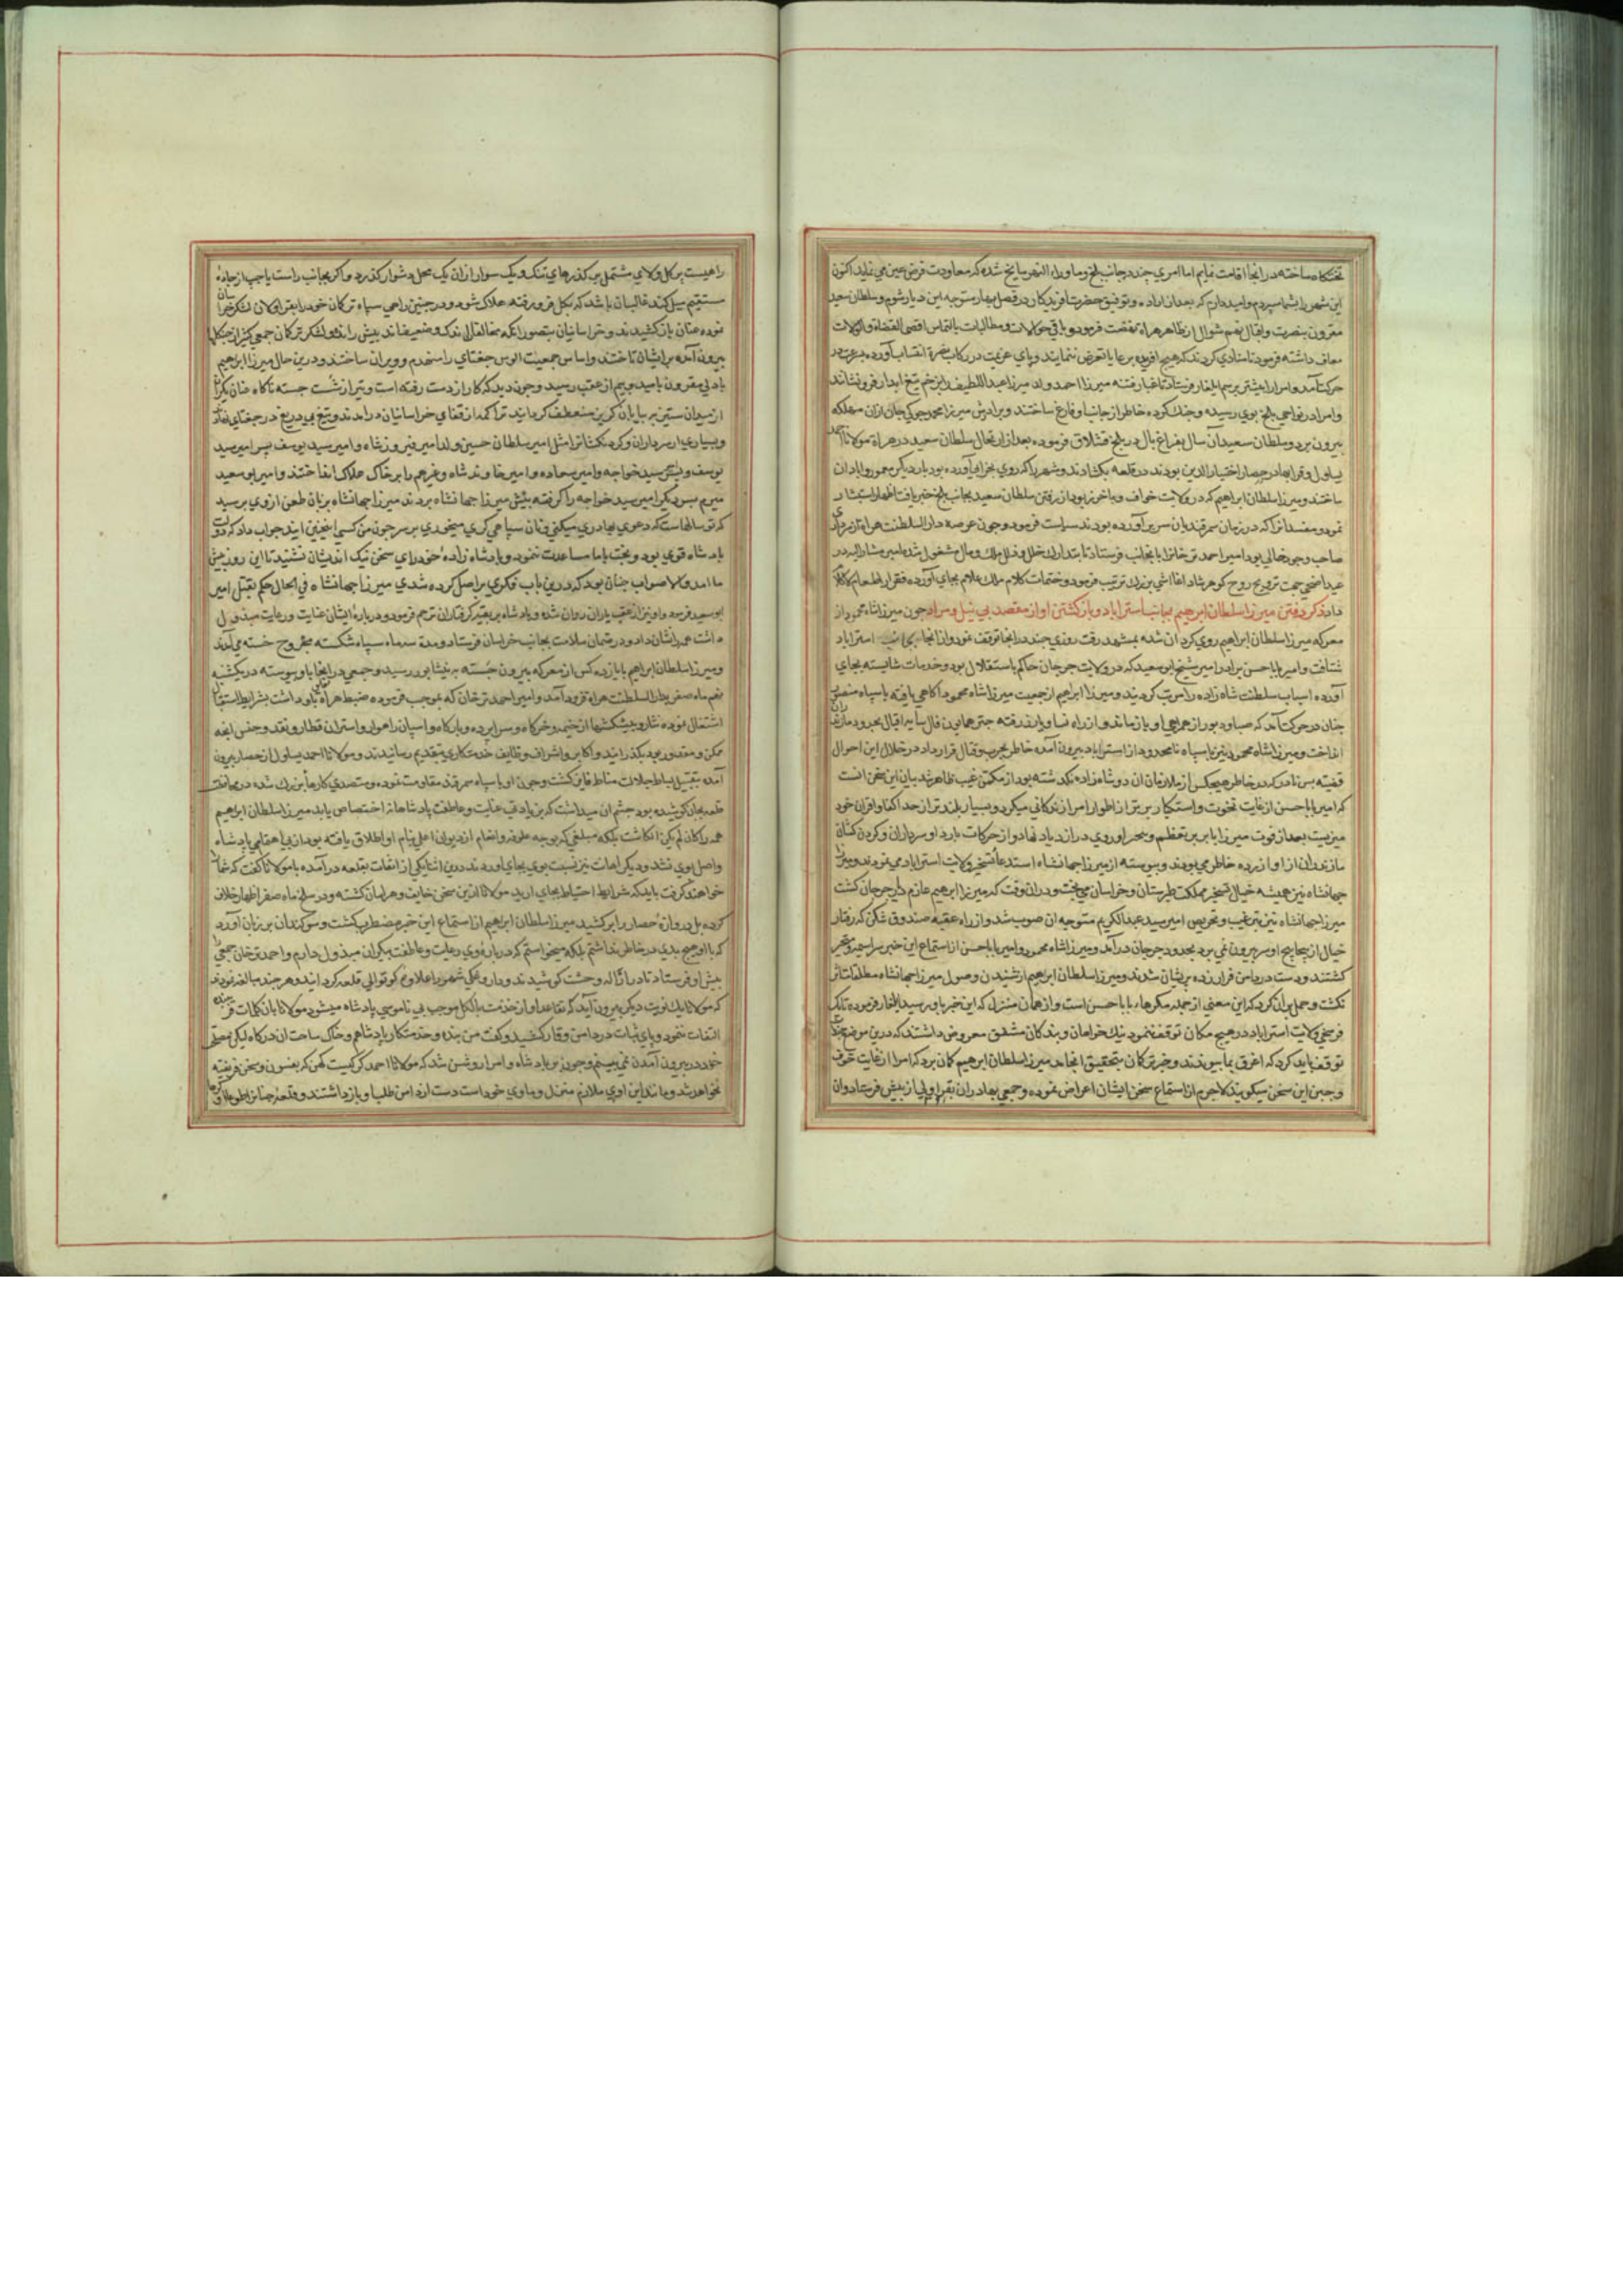 تختگاه ساخته در انجا اقامت نمایم اما امری چند در جانب بلخ و ماوراء النهر سایخ شده که معاودت فرض عین می نماید اکنون
این شهر را بشما سپردم و امید دارم که بعد از اراده و توفیق حضرت افریدکار در فصل بهار متوجه این دیار شوم و سلطان سعید
مقرون بنصرت و اقبال نهم شوال از ظاهر هراة نهضت فرمود و باقی حوالات و مطالبات بالتماس اقضی القضاة و الولات
معاف داشته فرمود تا منادی کردند که هیچ افریده برعایا تعرض ننمایند و پای عزیمت در رکاب نصرة انتساب آورده بسرعت در
حرکت آمد و امرا را پیشتر برسم ایلغار فرستاد تا غبار فتنه میرزا احمد ولد میرزا عبد اللطیف را بزخم تیغ ابدار فرو نشاند
و امرا در نواحی بلخ بوی رسیده و جنک کرده خاطر از جانب او فارغ ساختند و برادرش میرزا محمد جوکی جان ازان مهلکه
بیرون برد و سلطان سعید آن سال بفراغ بال در بلخ قشلاق فرموده بعد از ارتحال سلطان سعید در هراة مولانا احمد
یساول و قرابهادر حصار اختیار الدین بودند در قلعه بکشادند و شهر را که روی بخرابی آورده بود بار دیکر معمور و ابادان
ساختند و میرزا سلطان ابراهیم که در ولایت خواف و باخرز بود از رفتن سلطان سعید بجانب بلخ خبر یافت اظهار استبشار
نمود و مفسدانرا که در زمان سمرقندیان سر بر آورده بودند سیاست فرمود و چون عرصه دار السلطنت هراة از
صاحب وجود خالی بود امیر احمد ترخانرا بانجانب فرستاد تا بتدارک خلل و ملک و مال مشغول شد امیر مشار الیه در
عید اضحی جهت ترویح روح کوهرشاد اغا آشی بزرک ترتیب فرمود و ختمات کلام ملک علام بجای آورده فقرا را طعام
داد ذکر رفتن میرزا سلطان ابرهیم بجانب استراباد و بازکشتن او از مقصد بی نیل و مراد چون میرزا شاه محمود از
معرکه میرزا سلطان ابراهیم روی کردان شده بمشهد رفت روزی چند در انجا توقف نمود و از انجا بجانب استراباد
شتافت و امیر بابا حسن برادر امیر شیخ ابو سعید که در ولایت جرجان حاکم باستقلال بود و خدمات شایسته بجای
آورده اسباب سلطنت شاه زاده را مرتب کردیند و میرزا ابراهیم از جمعیت میرزا شاه محمود اکاهی یافته با سپاه منصور
چنان در حرکت آمد که صبا و دبور از همراهی او باز ماند و از راه نسا و باورد رفته چتر همایون فال سایه اقبال بحدود مازندران
انداخت و میرزا شاه محمود نیز با سپاه نامحدود از استراباد بیرون آمده خاطر بحرب و قتال قرار داد در خلال این احوال
قضیه بس نادر که در خاطر هیچکس از ملازمان ان دو شاه زاده نکدشته بود از مکمن غیب ظاهر شد بیان این سخن انست
که امیر بابا حسن از غایت نخوت و استکبار برتر از اطوار امرا زندکانی میکرد و بسیار بلندتر از حد اکفا و اقران خود
میزیست بعد از فوت میرزا بابر بر تعظم و تجبر او روی در ازدیاد نهاد و از حرکات بارد او سرداران و کردن کشان
مازندران از او ازرده خاطر می بودند و پیوسته از میرزا جهانشاه استدعاء تسخیر ولایت استراباد می نمودند و میرزا
جهانشاه نیز همیشه خیال تسخیر مملکت طبرستان و خراسان می پخت و در ان وقت که میرزا ابرهیم عازم دیار جرجان کشت
میرزا جهانشاه نیز بترغیب و تحریص امیر سید عبد الکریم متوجه ان صوب شد و از راه عقبه صندوق شکن که رفتار
خیال از پیچاپیچ او سر بیرون نمی برد بحدود جرجان در آمد و میرزا شاه محمود و امیر بابا حسن از استماع این خبر سراسیمه و متحیر
کشتند و دست در دامن فرار زده پریشان شدند و میرزا سلطان ابرهیم از شنیدن وصول میرزا جهانشاه مطلقا متاثر
نکشت و حمل بران کرد که این معنی از جمله مکرهاء بابا حسن است و از همان منزل که این خبر باو رسید ایلغار فرموده تا یک
فرسخی ولایت استراباد در هیچ مکان توقف ننمود نیک خواهان و بندکان مشفق معروض داشتند که درین موضع چندان
توقف باید کرد که اغرق بما پیوندند و خبر ترکان بتحقیق انجامد میرزا سلطان ابرهیم کمان برد که امرا از غایت خوف
و جبن این سخن میکویند لاجرم از استماع سخن ایشان اعراض نموده و جمعی بهادران بقراولی از پیش فرستاد و ان
راهیست پر کل و لای مشتمل بر کذرهای تنک و یک سوار ازان یک محل دشوار کذرد و اکر بجانب راست یا چپ از جاده
مستقیم میل کند غالب ان باشد که بکل فرو رفته هلاک شود و در چنین راهی سپاه ترکان خود را بقراولان لشکر خراسان
نموده عنان باز کشیدند و خراسانیان بتصور انکه مخالفان اندک و ضعیف اند پیش راندند و لشکر ترکان جمعی کثیر از جنکلها
بیرون آمده بر ایشان تاختند و اساس جمعیت الوس جغتای را منهدم و ویران ساختند و درین حال میرزا ابرهیم
با دلی مقرون بامید و بیم از عقب رسید و چون دید که کار از دست رفته است و تیر از شست جسته ناکاه عنان یکران
از میدان ستیز بر بیابان کریز منعطف کردانید تراکمه از قفای خراسانیان در امدند و تیغ بی دریغ در جغتای نهاد
و بسیاری از سرداران و کردنکشانرا مثل امیر سلطان حسین ولد امیر فیروز شاه و امیر سید یوسف پسر امیر سید
یوسف و پسر سید خواجه و امیر سعاده و امیر خاوند شاه و غیرهم را بر خاک هلاک انداختند و امیر ابو سعید
میرم پسر دیکر امیر سید خواجه را کرفته پیش میرزا جهانشاه بردند میرزا جهانشاه بزبان طعن از وی پرسید
که تو سالهاست که دعوی بهادری میکنی و نان سپاهی کری میخوری بر سر چون من کسی اینچنین ایند جواب داد که دولت
بادشاه قوی بود و بخت با ما مساعدت ننمود و پادشاه زادهٔ خود رای سخن نیک اندیشان نشنید تا این روز پیش
ما امد و الا صواب چنان بود که درین باب فکری بر اصل کرده شدی میرزا جهانشاه فی الحال حکم بقتل امیر
ابو سعید فرمود و او نیز از عقب یاران روان شد و پادشاه بر بقیه کرفتاران ترحم فرمود و در بارهٔ ایشان عنایت و رعایت مبذول
داشت همه را نشان داد و در ضمان سلامت بجانب خراسان فرستاد و مدة سه ماه سپاه شکسته مجروح خسته می آمدند
و میرزا سلطان ابرهیم با یازده کس از معرکه بیرون جسته به نیشابور رسید و جمعی در انجا باو پیوسته در یکشنبه
نهم ماه صفر بدار السلطنت هراة فرود آمد و امیر احمد ترخان که بموجب فرموده ضبط هراة باو داشت بشرایط استقبال
اشتغال نموده نثار و پیشکشها از خیمه و خرکاه و سراپرده و بارکاه و اسپان راهوار و استران قطار و نقد و جنس انچه
ممکن و مقدور بود بکذرانید و اکابر و اشراف وظایف خدمتکاری بتقدیم رسانیدند و مولانا احمد یساول از حصار بیرون
آمده بتقبیل بساط جلالت مناط فایز کشت و چون او با سپاه سمرقند مقاومت نموده و متصدی کارهاء بزرک شده در محافظت
قلعه بجان کوشیده بود چشم ان میداشت که بزیادتی عنایت و عاطفت پادشاهانه اختصاص یابد میرزا سلطان ابرهیم
همه را کان لم یکن انکاشت بلکه مبلغی که بوجه علوفه و انعام از دیوان اعلی بنام او اطلاق یافته بود از بی اهتمامی پادشاه
واصل وی نشد و دیکر اهانت نیز نسبت بوی بجای اوردند درین اثنا یکی از اثقات بقلعه در آمده با مولانا کفت که شما را
خواهند کرفت باید که شرایط احتیاط بجای ارید مولانا ازین سخن خایف و هراسان کشته و در سلخ ماه صفر اظهار خلاف
کرده پل دروازهٔ حصار را بر کشید میرزا سلطان ابرهیم از استماع این خبر مضطرب کشت و سوکندان بر زبان آورد
که با او هیچ بدی در خاطر نداشتم بلکه میخواستم که در بارهٔ وی رعایت و عاطفت بیکران مبذول دارم و احمد ترخان جمعی
پیش او فرستاد تا در ازاله وحشت کوشیدند و داروغکی شهر را علاوهٔ کوتوالی قلعه کردانید و هر چند مبالغه نمودند
که مولانا یک نوبت دیکر بیرون آید که تقاعد او از خدمت بالکل موجب بی ناموسی پادشاه میشود مولانا بان کلمات
التفات ننمود و پای ثبات در دامن وقار کشید و کفت من بنده و خدمتکار پادشاهم و خاک ساحت ان درکاه لیکن مصلحت
خود در بیرون آمدن نمی بینم و چون بر پادشاه و امرا روشن شد که مولانا احمد کرکیست کهن که بفسون و سخن فریفته
نخواهد شد و مانند این اوی ملازم منزل و ماوی خود است دست از دامن طلب او باز داشتند و قلعه